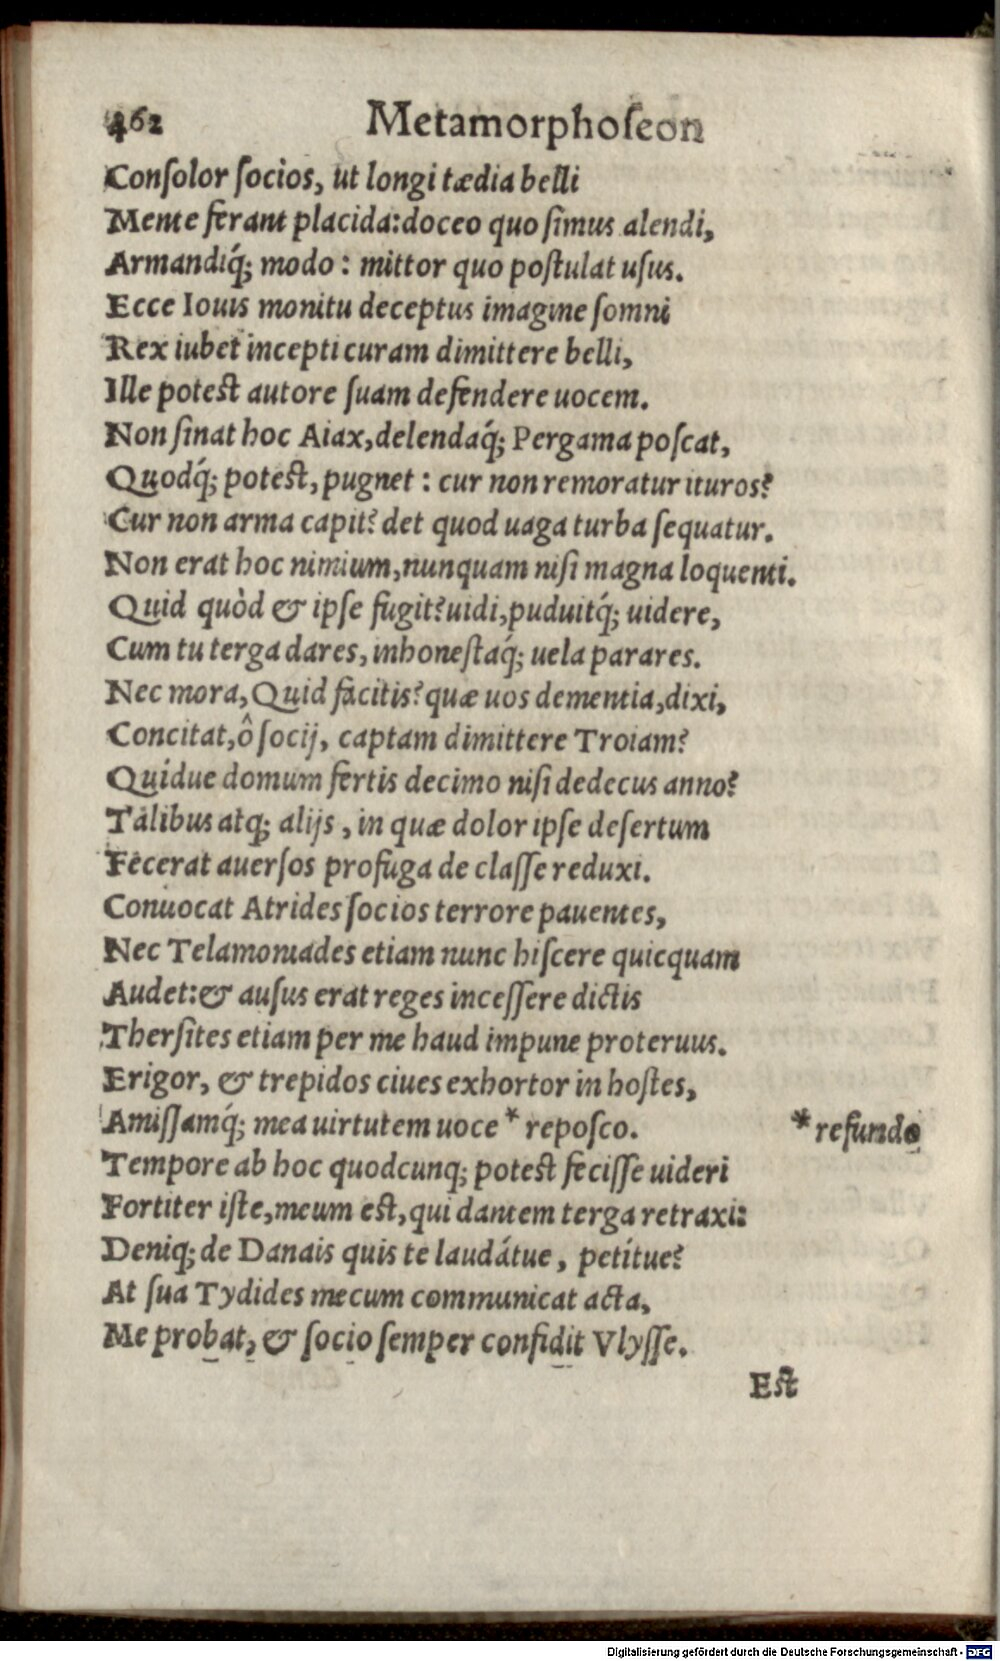 462 Metamorphoſeon
Conſolor ſocios, ut longi tædia belli
Mente ferant placida: doceo quo ſimus alendi,
Armandiq́; modo : mittor quo poſtulat uſus.
Ecce Iouis monitu deceptus imagine ſomni
Rex iubet incepti curam dimittere belli,
Ille poteſt autore ſuam defendere uocem.
Non ſinat hoc Aiax, delendaq́; Pergama poſcat,
Quodq́; poteſt, pugnet : cur non remoratur ituros?
Cur non arma capit? det quod uaga turba ſequatur.
Non erat hoc nimium, nunquam niſi magna loquenti.
Quid quòd & ipſe fugit? uidi, puduitq́; uidere,
Cum tu terga dares, inhoneſtaq́; uela parares.
Nec mora, Quid facitis? quæ uos dementia, dixi,
Concitat, ô ſocij, captam dimittere Troiam?
Quidue domum fertis decimo niſi dedecus anno?
Talibus atq; alijs, in quæ dolor ipſe deſertum
Fecerat auerſos profuga de claſſe reduxi.
Conuocat Atrides ſocios terrore pauentes,
Nec Telamoniades etiam nunc hiſcere quicquam
Audet: & auſus erat reges inceſſere dictis
Therſites etiam per me haud impune proteruus.
Erigor, & trepidos ciues exhortor in hoſtes,
Amiſſamq́; mea uirtutem uoce * repoſco. * refundo
Tempore ab hoc quodcunq; poteſt feciſſe uideri
Fortiter iſte, meum eſt, qui dantem terga retraxi:
Deniq; de Danais quis te laudátue, petítue?
At ſua Tydides mecum communicat acta,
Me probat, & ſocio ſemper confidit Vlyſſe.
Eſt
Digitalisierung gefördert durch die Deutsche Forschungsgemeinschaft - DFG